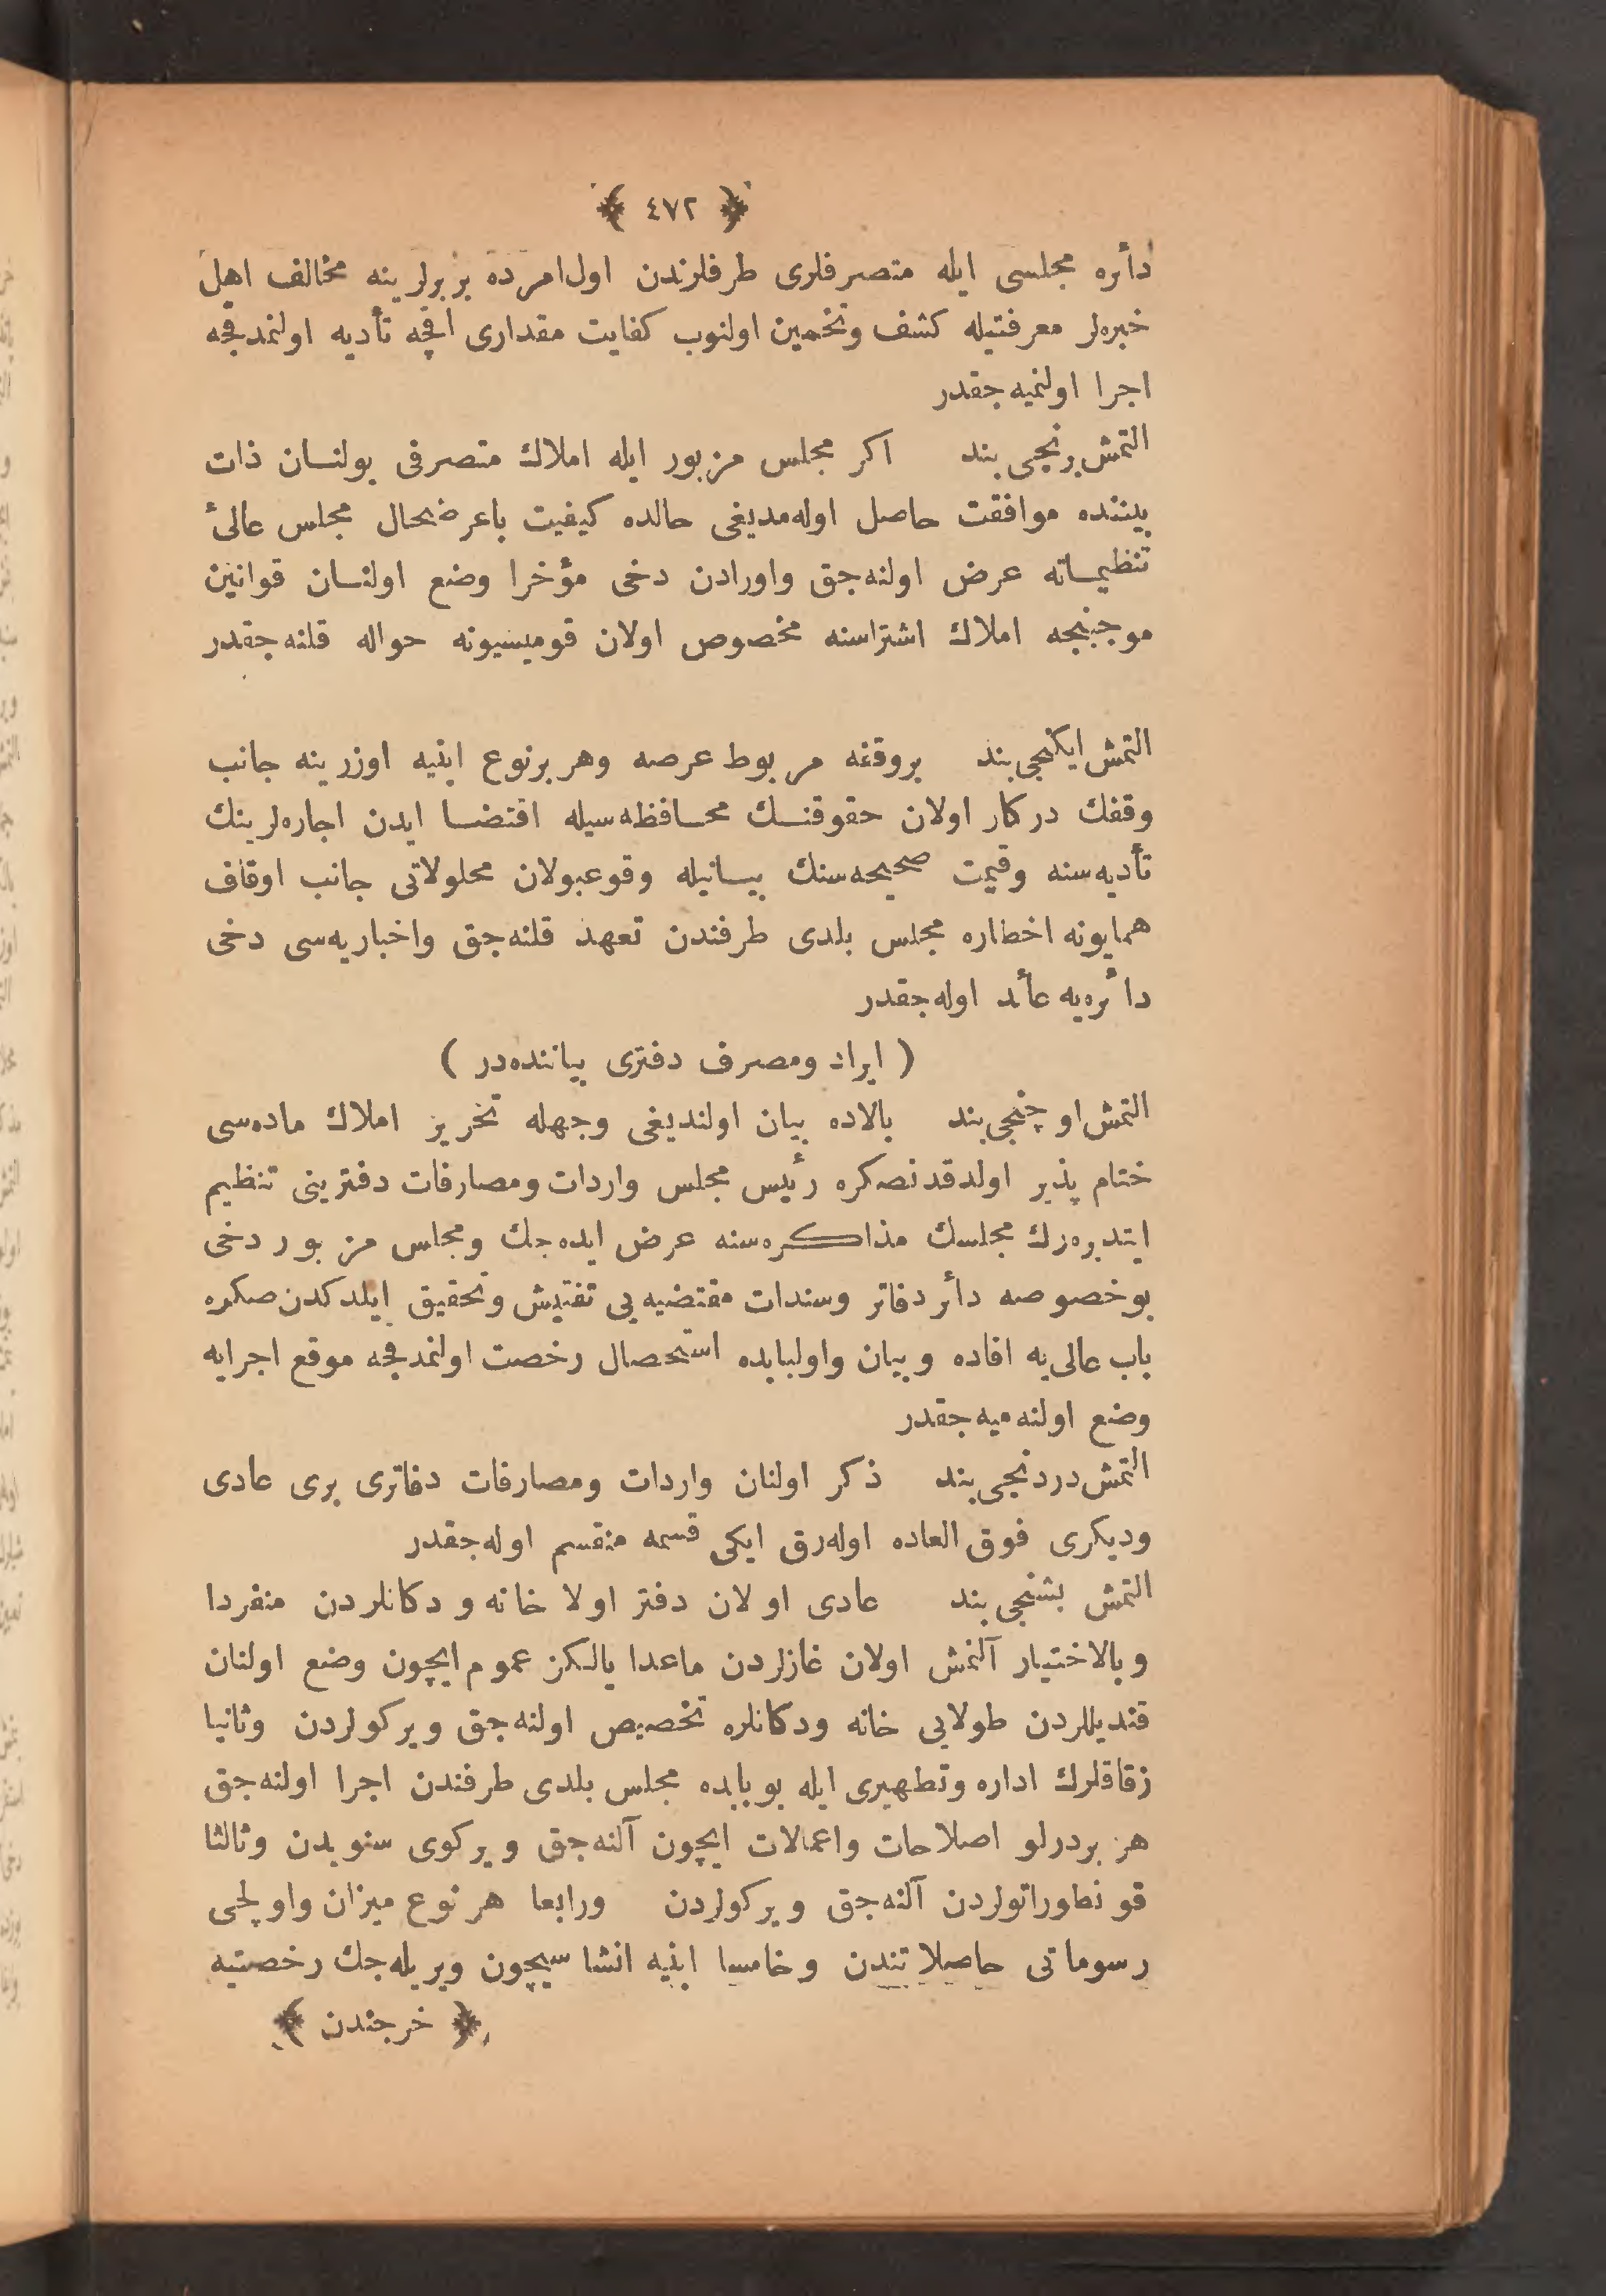 ﴿ ٤٧٢ ﴾
دأئره مجلسی ایله متصرفلری طرفلرندن اول‌امرده بربرلرینه مخالف اهل
خبره‌لر معرفتیله کشف وتخمین اولنوب کفایت مقداری اقچه تأدیه اولنمدقجه
اجرا اولنمیه‌جقدر
التمش‌برنجی‌بند اکر مجلس مزبور ایله املاك متصرفی بولنسان ذات
بیننده موافقت حاصل اوله‌مدیغی حالده کیفیت باعرضحال مجلس عالیٔ
تنظیماته عرض اولنه‌جق واورادن دخی مؤخرا وضع اولنسان قوانین
موجبنجه املاك اشتراسنه مخصوص اولان قومیسیونه حواله قلنه‌جقدر
التمش‌ایکنجی‌بند بروقفه مربوط عرصه وهر برنوع ابنیه اوزرینه جانب
وقفك درکار اولان حقوقنسك محسافظه‌سیله اقتضسا ایدن اجاره‌لرینك
تأدیه‌سنه وقیمت صحیحه‌سنك بیسانیله وقوعبولان محلولاتی جانب اوقاف
همایونه اخطاره مجلس بلدی طرفندن تعهد قلنه‌جق واخباریه‌سی دخی
دائره‌یه عائد اوله‌جقدر
( ایراد ومصرف دفتری بیاننده‌در )
التمش‌اوچنجی‌بند بالاده بیان اولندیغی وجهله تحریر املاك ماده‌سی
ختام پذیر اولدقدنصکره رئیس مجلس واردات ومصارفات دفترینی تنظیم
ایتدیره‌رك مجلسك مذاکره‌سنه عرض ایده‌جك ومجلس مزبور دخی
بوخصوصه دأئر دفاتر وسندات مقتضیه‌یی تفتیش وتحقیق ایلدکدن‌صکره
باب عالی‌یه افاده وبیان واولبابده استحصال رخصت اولنمدقجه موقع اجرایه
وضع اولنه‌میه‌جقدر
التمش‌دردنجی‌بند ذکر اولنان واردات ومصارفات دفاتری بری عادی
ودیکری فوق‌العاده اوله‌رق ایکی قسمه منقسم اوله‌جقدر
التمش بشنجی‌بند عادی اولان دفتر اولا خانه ودکانلردن منفردا
وبالاختیار آلنمش اولان غازلردن ماعدا یالکز عموم‌ایچون وضع اولنان
قندیللردن طولایی خانه ودکانلره تخصیص اولنه‌جق ویرکولردن وثانیا
زقاقلرك اداره وتطهیری ایله بوبابده مجلس بلدی طرفندن اجرا اولنه‌جق
هر بردرلو اصلاحات واعمالات ایچون آلنه‌جق ویرکوی سنویدن وثالثا
قونطوراتولردن آلنه‌جق ویرکولردن ورابعا هر نوع میزان واولچی
رسوماتی حاصلاتندن وخامسا ابنیه انشاسیچون ویریله‌جك رخصتیه
﴿ خرجندن ﴾